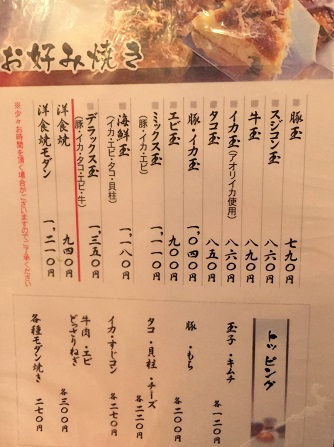 お好み焼き
豚玉 七九〇円
スジコン玉 八六〇円
牛玉 八九〇円
イカ玉(アオリイカ使用) 八六〇円
タコ玉 八五〇円
豚・イカ玉 一、〇四〇円
エビ玉 九〇〇円
ミックス玉(豚・イカ・エビ) 一、一一〇円
海鮮玉(イカ・エビ・タコ・貝柱) 一、一八〇円
デラックス玉(豚・イカ・タコ・エビ・牛) 一、三五〇円
洋食焼 九四〇円
洋食焼モダン 一、二一〇円
※少々お時間を頂く場合がございますのでご了承ください
トッピング
玉子・キムチ 各一二〇円
豚・もち 各二〇〇円
タコ・貝柱・チーズ 各二二〇円
イカ・すじコン 各二七〇円
牛肉・エビ
どっさりねぎ 各三〇〇円
各種モダン焼き 二七〇円